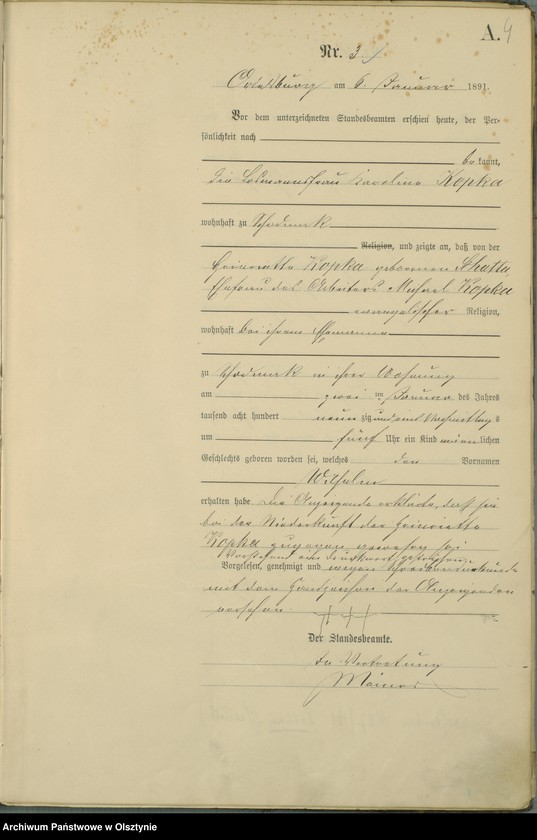 A. 4
Nr. 3
Ortelsburg am 6. Januar 1891.
Vor dem unterzeichneten Standesbeamten erschien heute, der Per-
sönlichkeit nach
bekannt,
die Losmannsfrau Karoline Kopka
wohnhaft zu Schodmak
Religion, und zeigte an, daß von der
Henriette Kopka geborenen
Ehefrau des Arbeiters Michael Kopka
evangelischer Religion,
wohnhaft bei ihrem Ehemanne
zu Schodmak in ihrer Wohnung
am zwei ten Januar des Jahres
tausend acht hundert neun zig und eins Nachmittags
um fünf Uhr ein Kind männlichen
Geschlechts geboren worden sei, welches den Vornamen
Wilhelm
erhalten habe. Die Anzeigende erklärte, daß sie
bei der Niederkunft der Henriette
Kopka zugegen gewesen sei
Vorstehend ein Druckwort gestrichen.
Vorgelesen, genehmigt und wegen Schreibensunkunde
mit dem Handzeichen der Anzeigenden
versehen.
+++
Der Standesbeamte.
In Vertretung
Archiwum Państwowe w Olsztynie